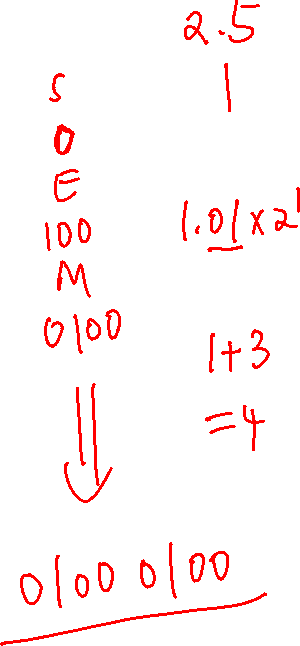 2.5
1
S
0
E
100
M
0100
1.01 x 2^1
1+3
=4
0100 0100